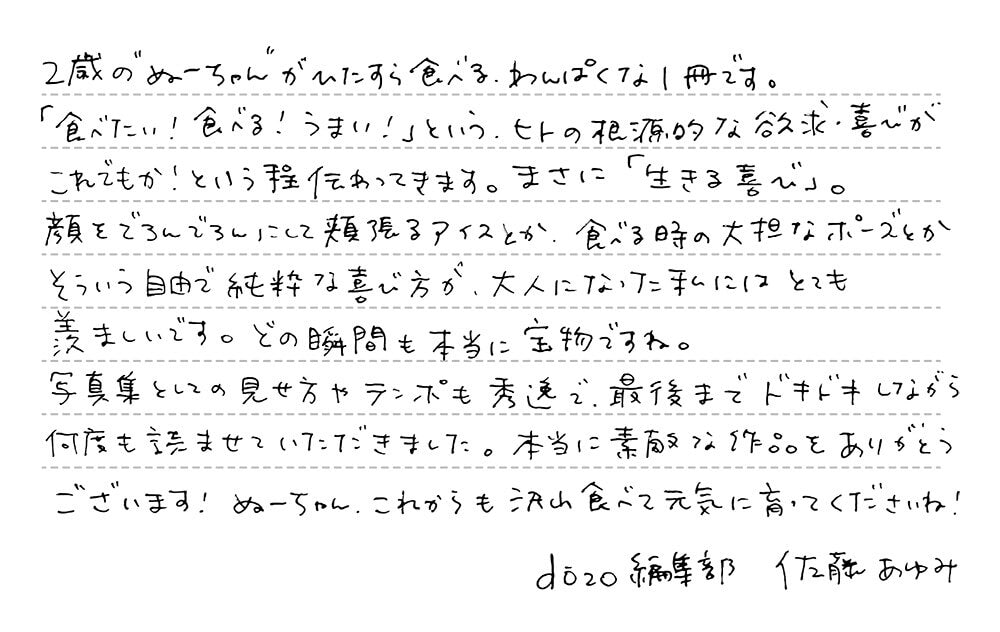 2歳の"ぬーちゃん"がひたすら食べる、わんぱくな1冊です。
「食べたい!食べる!うまい!」という、ヒトの根源的な欲求・喜びが
これでもか!という程伝わってきます。まさに「生きる喜び」。
顔をでろんでろんにして頬張るアイスとか、食べる時の大胆なポーズとか
そういう自由で純粋な喜び方が、大人になった私にはとても
羨ましいです。どの瞬間も本当に宝物ですね。
写真集としての見せ方やテンポも秀逸で、最後までドキドキしながら
何度も読ませていただきました。本当に素敵な作品をありがとう
ございます!ぬーちゃん、これからも沢山食べて元気に育ってくださいね!
dōzo編集部 佐藤あゆみ